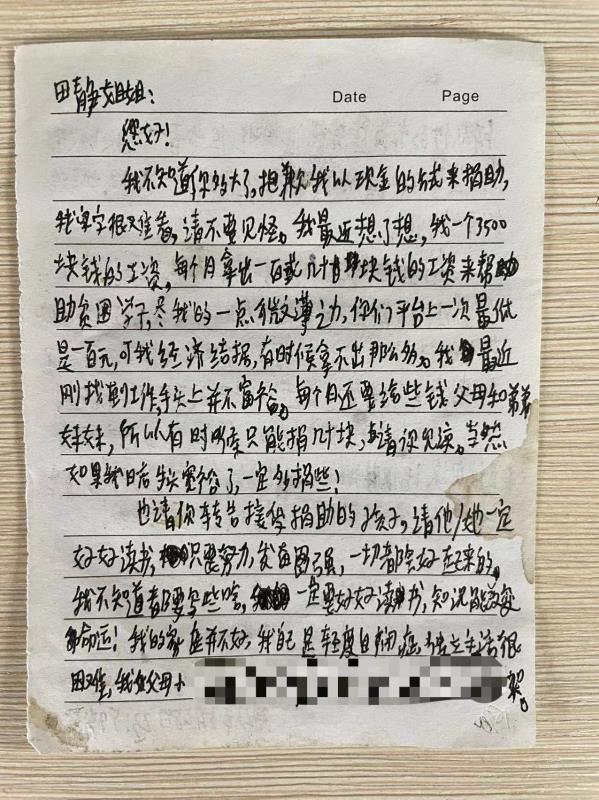 田静姐姐：
Date Page
您好！
我不知道你多大了，抱歉我以现金的方式来捐助，
我写字很难看，请不要见怪。我最近想了想，我一个3500
块钱的工资，每个月拿出一百或几十块钱的工资来帮
助贫困学子，尽我的一点微薄之力，你们平台上一次最低
是一百元，可我经济结据，有时候拿不出那么多。我最近
刚找到工作手头上并不富裕。每个月还要给些钱父母和弟弟
妹妹，所以有时候只能捐几十块，请谅见谅。当然
如果我日后生宽裕了，一定多捐些！
也请你转告接受捐助的孩子。请他/她一定
好好读书，只要努力，发奋图强，一切都会好起来的。
我不知道都要写些啥，一定要好好读书，知识能改变
命运！我的家庭并不好，我自己是轻度自闭症，生活很
困难，我如父母